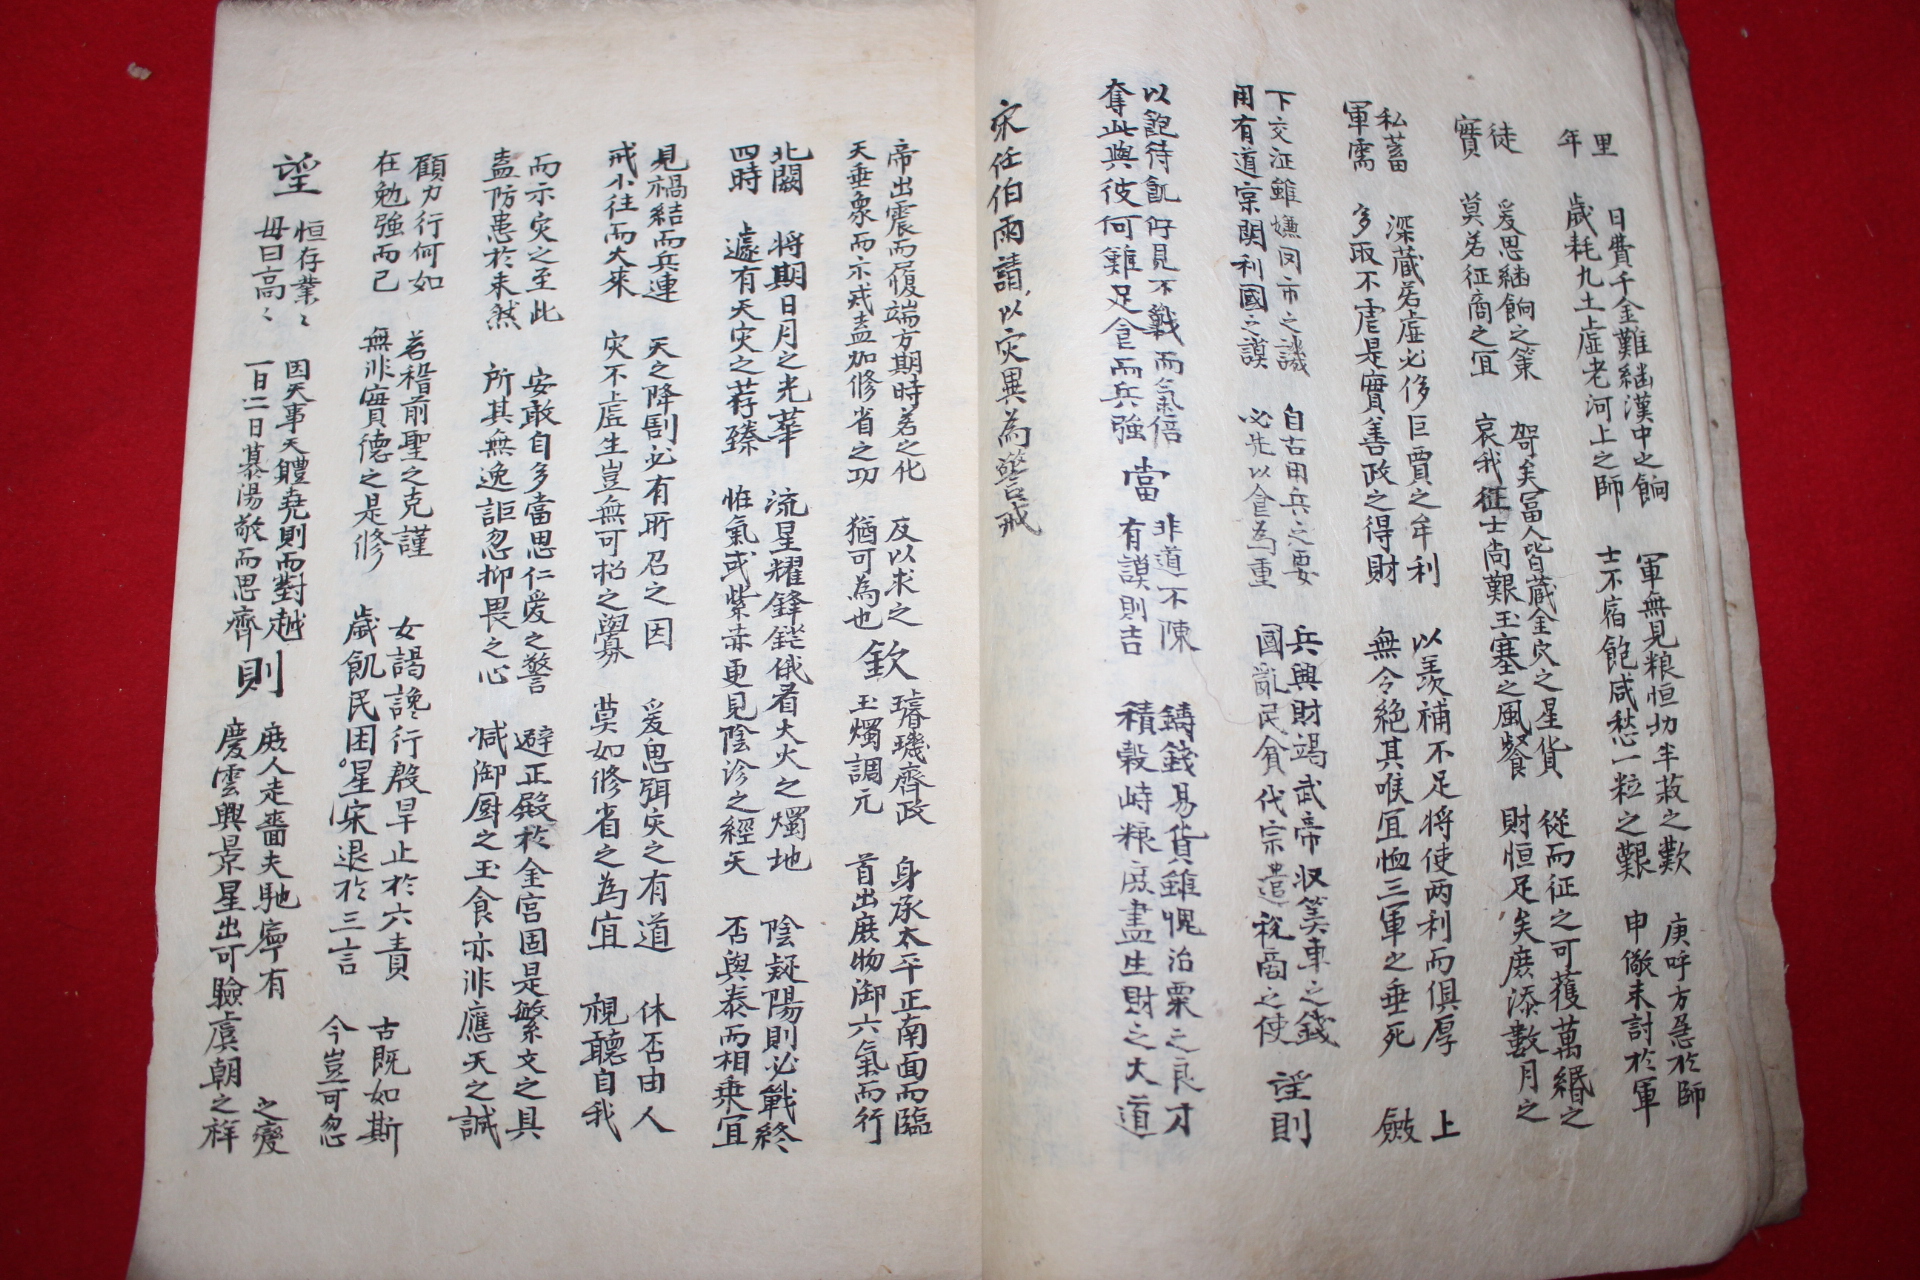 里 日費千金難繼漢中之餉 軍無見粮恒切半菽之歎 庚呼方急於師
年 歲耗九土虛老河上之師 士不宿飽咸愁一粒之艱 申儆未討於軍
徒 爰思繼餉之策 哿矣富人皆藏金穴之星貨 從而征之可獲萬緡之
實 莫若征商之宜 哀我征士尚艱玉塞之風餐 財恒足矣庶添數月之
私蓄 深藏若虛必侈巨賈之牟利 以羨補不足將使兩利而俱厚 上
軍需 多取不虐是實善政之得財 無令絶其喉宜恤三軍之垂死 斂
下交征雖嫌罔市之譏 自古用兵之要 兵興財竭武帝収筭車之錢 望則
用有道宗関利國之謨 必先以食為重 國亂民貧代宗遣稅商之使
以飽待飢佇見不戰而氣倍 當 非道不陳 鑄錢易貨雖愧治粟之良才
奪此與彼何難足食而兵強 有謨則吉 積穀峙粮庶盡生財之大道
宋任伯雨請以灾異為警戒
帝出震而履端方期時若之化 反以求之 欽 璿璣齊政 身承太平正南面而臨
天垂象而示戒盍加修省之功 猶可為也 玉燭調元 首出庶物御六氣而行
北闕 將期日月之光華 流星耀鋒鋩俄看大火之燭地 陰疑陽則必戰終
四時 遽有天灾之荐臻 恠氣或紫赤更見陰沴之經天 否與泰而相乗宜
見禍結而兵連 天之降割必有所召之因 爰思弭灾之有道 休否由人
戒小往而大來 灾不虛生豈無可招之釁 莫如修省之為宜 視聽自我
而示灾之至此 安敢自多當思仁爱之警 避正殿於金宫固是繁文之具
盍防患於未然 所其無逸詎忽抑畏之心 减御厨之玉食亦非應天之誠
顧力行何如 若稽前聖之克謹 女謁讒行殷旱止於六責 古既如斯
在勉強而已 無非實德之是修 歲飢民困星宋退於三言 今豈可忽
望 恒存業〻 因天事天體堯則而對越 則 庶人走嗇夫馳寧有 之變
毋曰高〻 一日二日慕湯敬而思齊 慶雲興景星出可驗虞朝之祥